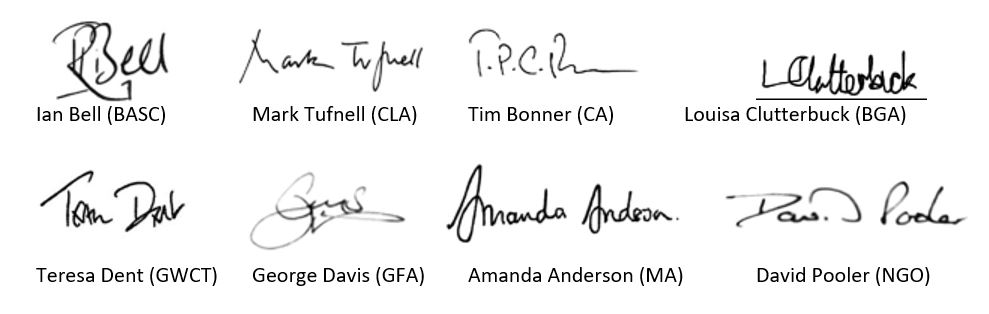 IBell Mark Tufnell T.P.C.B LClutterbuck
Ian Bell (BASC) Mark Tufnell (CLA) Tim Bonner (CA) Louisa Clutterbuck (BGA)
Dent Amanda Anderson. David Pooler
Teresa Dent (GWCT) George Davis (GFA) Amanda Anderson (MA) David Pooler (NGO)